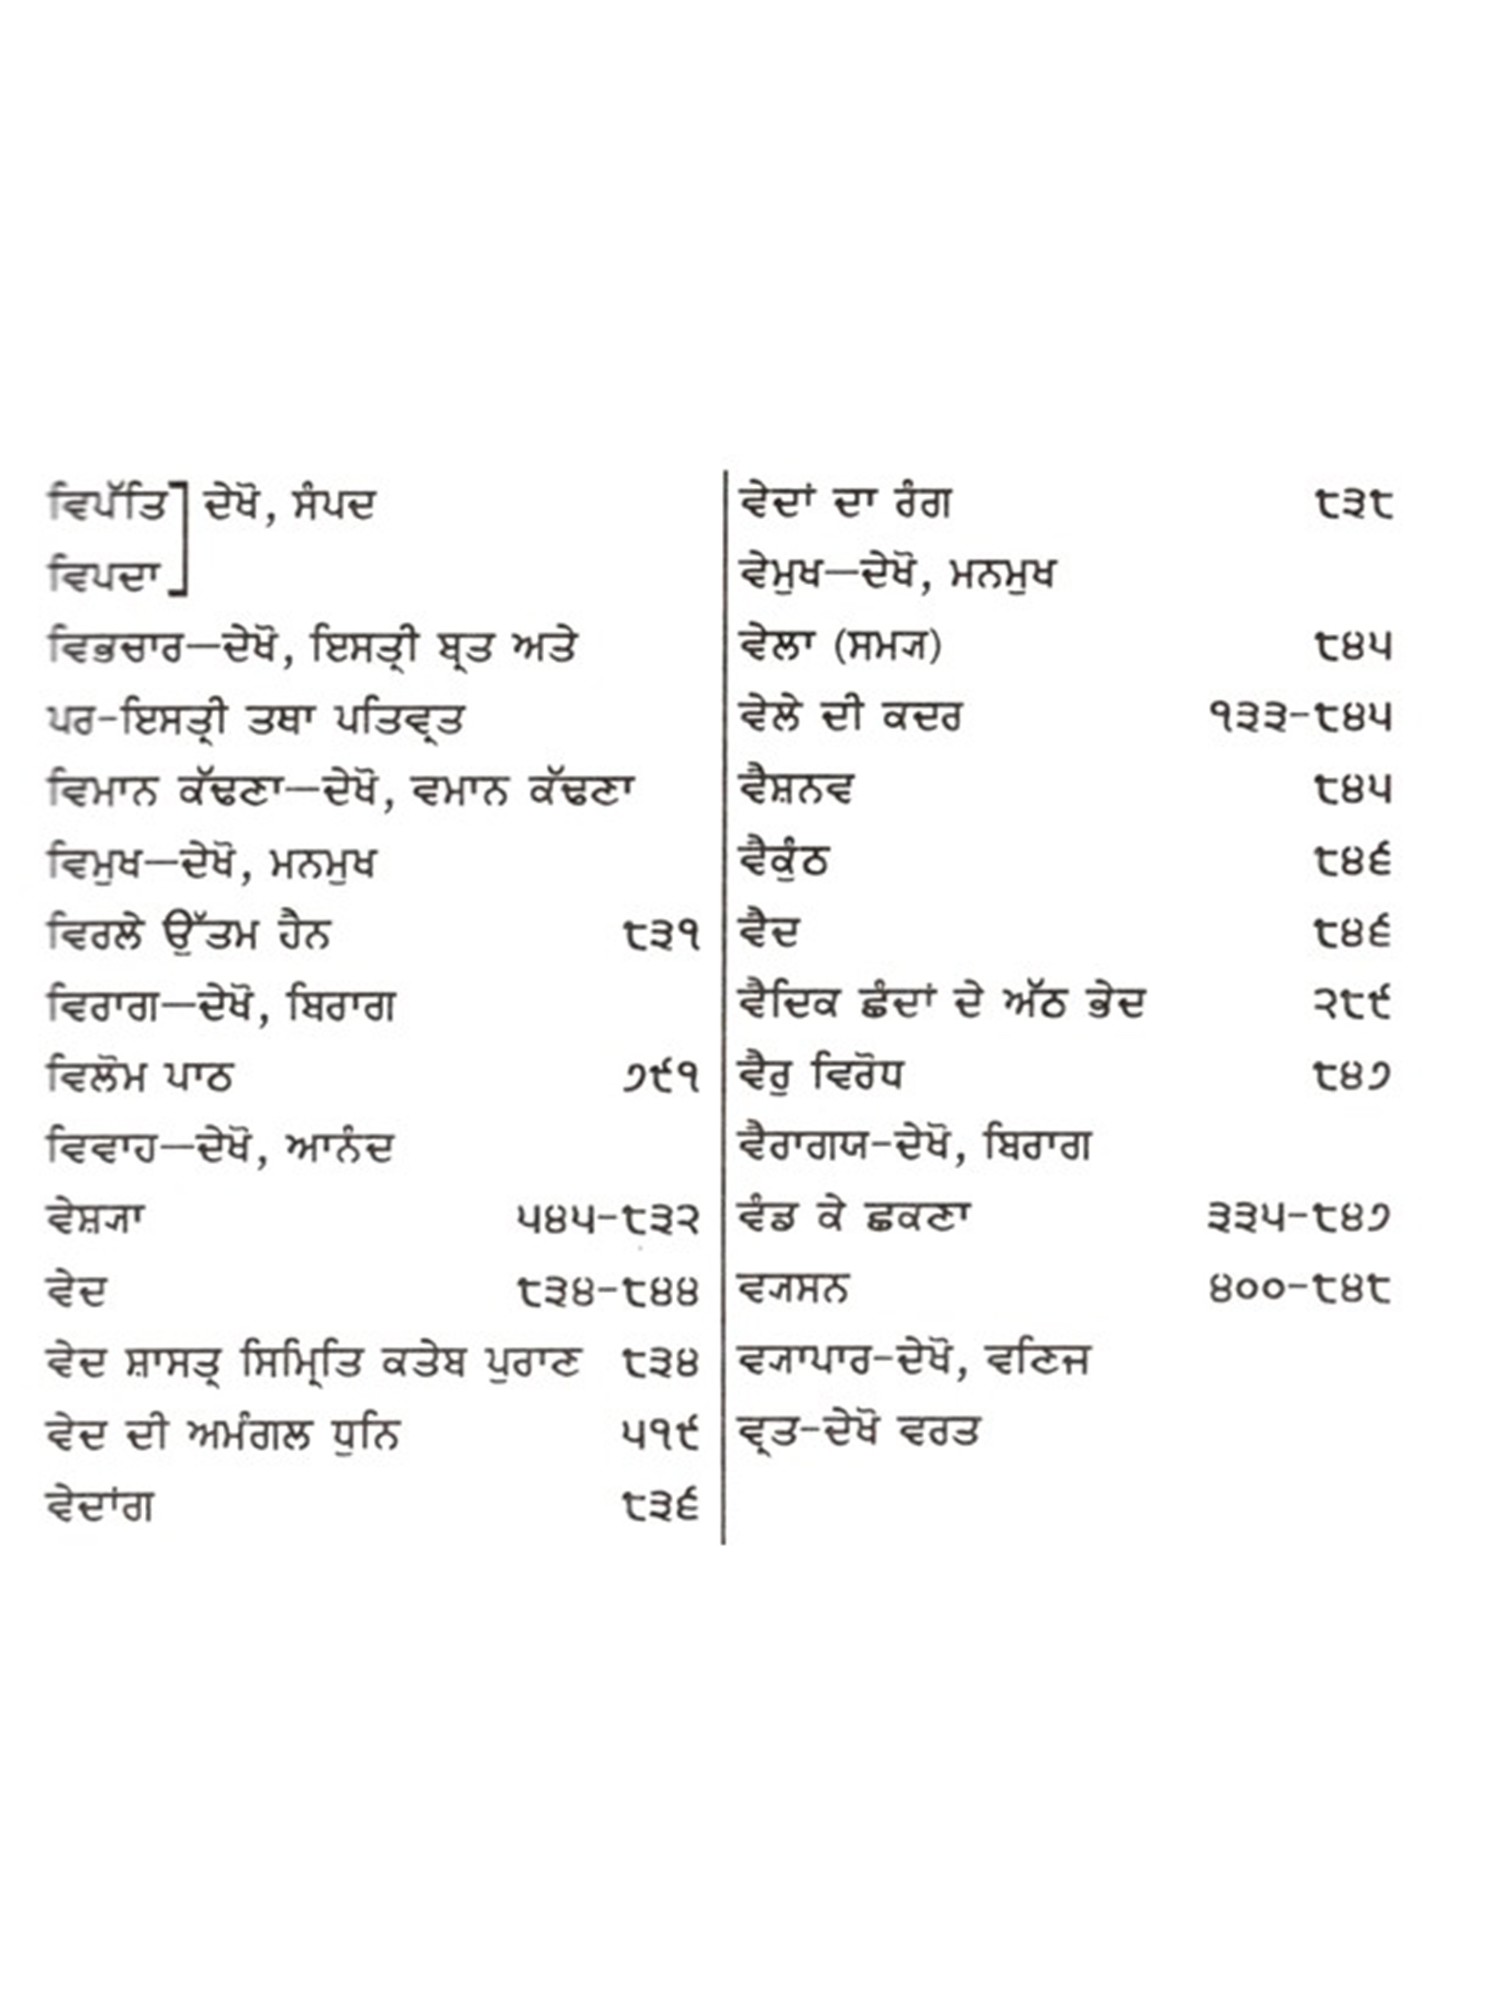 ਵਿਪੱਤਿ] ਦੇਖੋ, ਸੰਪਦ
ਵਿਪਦਾ]
ਵਿਭਚਾਰ—ਦੇਖੋ, ਇਸਤ੍ਰੀ ਬ੍ਰਤ ਅਤੇ
ਪਰ-ਇਸਤ੍ਰੀ ਤਥਾ ਪਤਿਵ੍ਰਤ
ਵਿਮਾਨ ਕੱਢਣਾ—ਦੇਖੋ, ਵਮਾਨ ਕੱਢਣਾ
ਵਿਮੁਖ—ਦੇਖੋ, ਮਨਮੁਖ
ਵਿਰਲੇ ਉੱਤਮ ਹੈਨ ੮੩੧
ਵਿਰਾਗ—ਦੇਖੋ, ਬਿਰਾਗ
ਵਿਲੋਮ ਪਾਠ ੭੯੧
ਵਿਵਾਹ—ਦੇਖੋ, ਆਨੰਦ
ਵੇਸ਼੍ਯਾ ੫੪੫-੮੩੨
ਵੇਦ ੮੩੪-੮੪੪
ਵੇਦ ਸ਼ਾਸਤ੍ਰ ਸਿਮ੍ਰਿਤਿ ਕਤੇਬ ਪੁਰਾਣ ੮੩੪
ਵੇਦ ਦੀ ਅਮੰਗਲ ਧੁਨਿ ੫੧੯
ਵੇਦਾਂਗ ੮੩੬
ਵੇਦਾਂ ਦਾ ਰੰਗ ੮੩੮
ਵੇਮੁਖ—ਦੇਖੋ, ਮਨਮੁਖ
ਵੇਲਾ (ਸਮ੍ਯ) ੮੪੫
ਵੇਲੇ ਦੀ ਕਦਰ ੧੩੩-੮੪੫
ਵੈਸ਼ਨਵ ੮੪੫
ਵੈਕੁੰਠ ੮੪੬
ਵੈਦ ੮੪੬
ਵੈਦਿਕ ਛੰਦਾਂ ਦੇ ਅੱਠ ਭੇਦ ੨੮੯
ਵੈਰੁ ਵਿਰੋਧ ੮੪੭
ਵੈਰਾਗਯ-ਦੇਖੋ, ਬਿਰਾਗ
ਵੰਡ ਕੇ ਛਕਣਾ ੩੩੫-੮੪੭
ਵ੍ਯਸਨ ੪੦੦-੮੪੮
ਵ੍ਯਾਪਾਰ-ਦੇਖੋ, ਵਣਿਜ
ਵ੍ਰਤ-ਦੇਖੋ ਵਰਤ